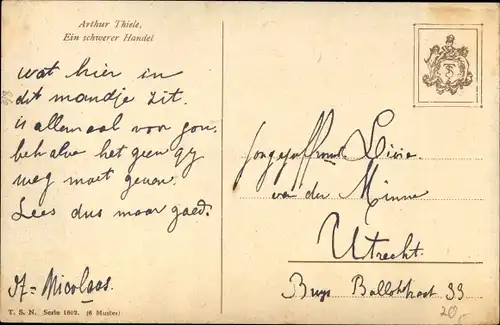 Arthur Thiele,
Ein schwerer Handel
wat hier in
dit mandje zit.
is allemaal voor jou.
behalve het geen gij
weg moet geven.
Lees dus maar goed.
St= Nicolaas.
T. S. N. Serie 1602. (6 Muster)
TS
Jongejuffrouw Livie.
van der Minne
Utrecht.
Buys Ballotstraat 33
20,-